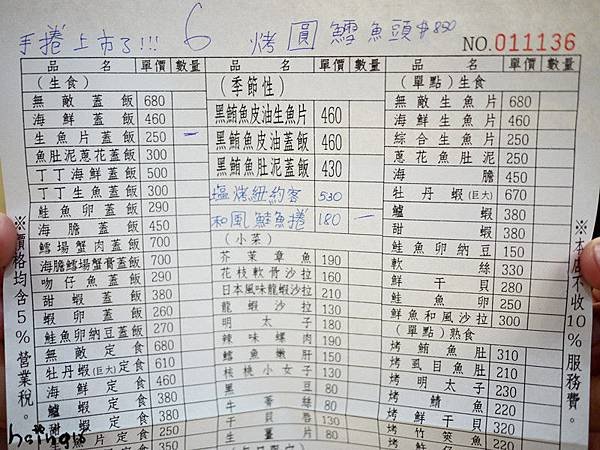 手捲上市了!!! 6 烤圓鱈魚頭$850 NO.011136
品名 單價 數量
(生食)
無敵蓋飯 680
海鮮蓋飯 460
生魚片蓋飯 250 一
魚肚泥蔥花蓋飯 300
丁丁海鮮蓋飯 500
丁丁生魚蓋飯 300
鮭魚卵蓋飯 290
海膽蓋飯 450
鱈場蟹肉蓋飯 700
海膽鱈場蟹膏蓋飯 700
吻仔魚蓋飯 260
甜蝦蓋飯 380
蝦卵蓋飯 260
鮭魚卵納豆蓋飯 270
無敵定食 680
牡丹蝦(巨大)定食 610
海鮮定食 460
鱸蝦定食 380
甜蝦定食
生魚片定食
品名 單價 數量
(季節性)
黑鮪魚皮油生魚片 460
黑鮪魚皮油蓋飯 460
黑鮪魚肚泥蓋飯 430
塩烤紐約客 530
和風鮭魚捲 180 一
(小菜)
芥茉章魚 190
花枝軟骨沙拉 160
日本風味龍蝦沙拉 210
龍蝦沙拉 130
明太子 180
辣味螺肉 190
鱈魚嫩肝 150
核桃小女子 130
黑豆 80
牛蒡絲 80
干貝唇 130
生薑片 80
品名 單價 數量
(單點)生食
無敵生魚片 680
海鮮生魚片 450
綜合生魚片 250
蔥花魚肚泥 250
海膽 450
牡丹蝦(巨大) 670
鱸蝦 380
甜蝦 380
鮭魚卵納豆 150
軟絲 330
鮮干貝 280
鮭魚卵 250
鮮魚和風沙拉 300
(單點)熟食
烤鮪魚肚 310
烤虱目魚肚 210
烤明太子 230
烤鯖魚 220
烤鮮干貝 320
烤竹筴魚 220
※價格均含5%營業稅。
※本店不收10%服務費。